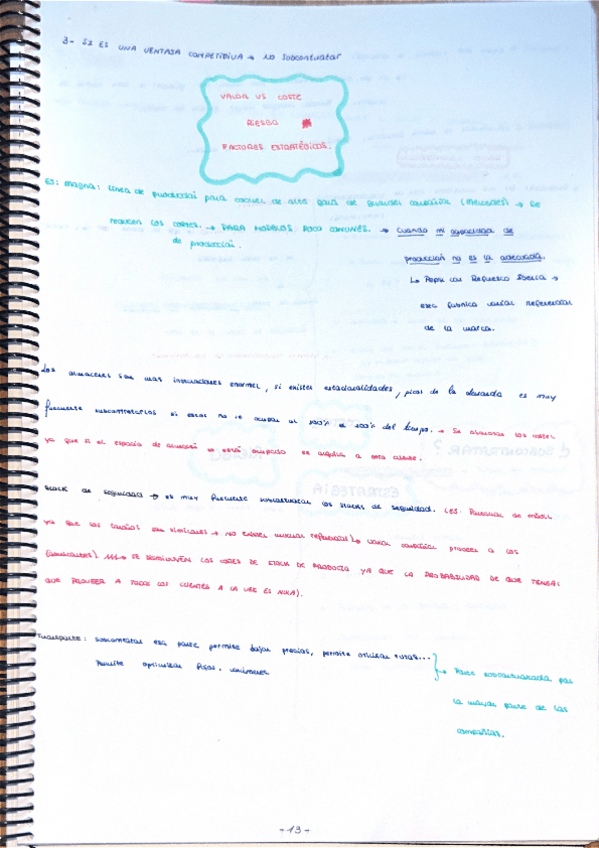 3- SI ES UNA VENTAJA COMPETITIVA → NO SUBCONTRATAR
VALOR VS COSTE
RIESGO
FACTORES ESTRATÉGICOS.
EJ: Magna: línea de producción para coches de alta gama de grandes compañías (Mercedes) → Se
reducen los costes. → PARA MODELOS POCO COMUNES. → Cuando mi capacidad de
de producción.
producción no es la adecuada.
↳ Pepsi con Refresco Iberia →
esta fabrica varias referencias
de la marca.
Los almacenes son unas instalaciones enormes, si existen estacionalidades, picos de la demanda es muy
frecuente subcontratarlos si estos no se ocupan al 100% el 100% del tiempo. → Se ahorran los costes
ya que si el espacio de almacén no está ocupado se alquila a otro cliente.
Stock de seguridad → es muy frecuente subcontratar los stocks de seguridad. (EJ: de móvil
ya que los son similares → NO EXISTEN muchas referencias) → varias compañías proveen a los
(fabricantes) → SE DISMINUYEN LOS COSTES DE STOCK DE PRODUCTO YA QUE LA PROBABILIDAD DE QUE TENGAS
QUE PROVEER A TODOS LOS CLIENTES A LA VEZ ES NULA).
Transporte: subcontratar esta parte permite bajar precios, permite optimizar rutas...
Permite optimizar flujos.
→ Parte subcontratada por
la mayor parte de las
compañías.
-13-